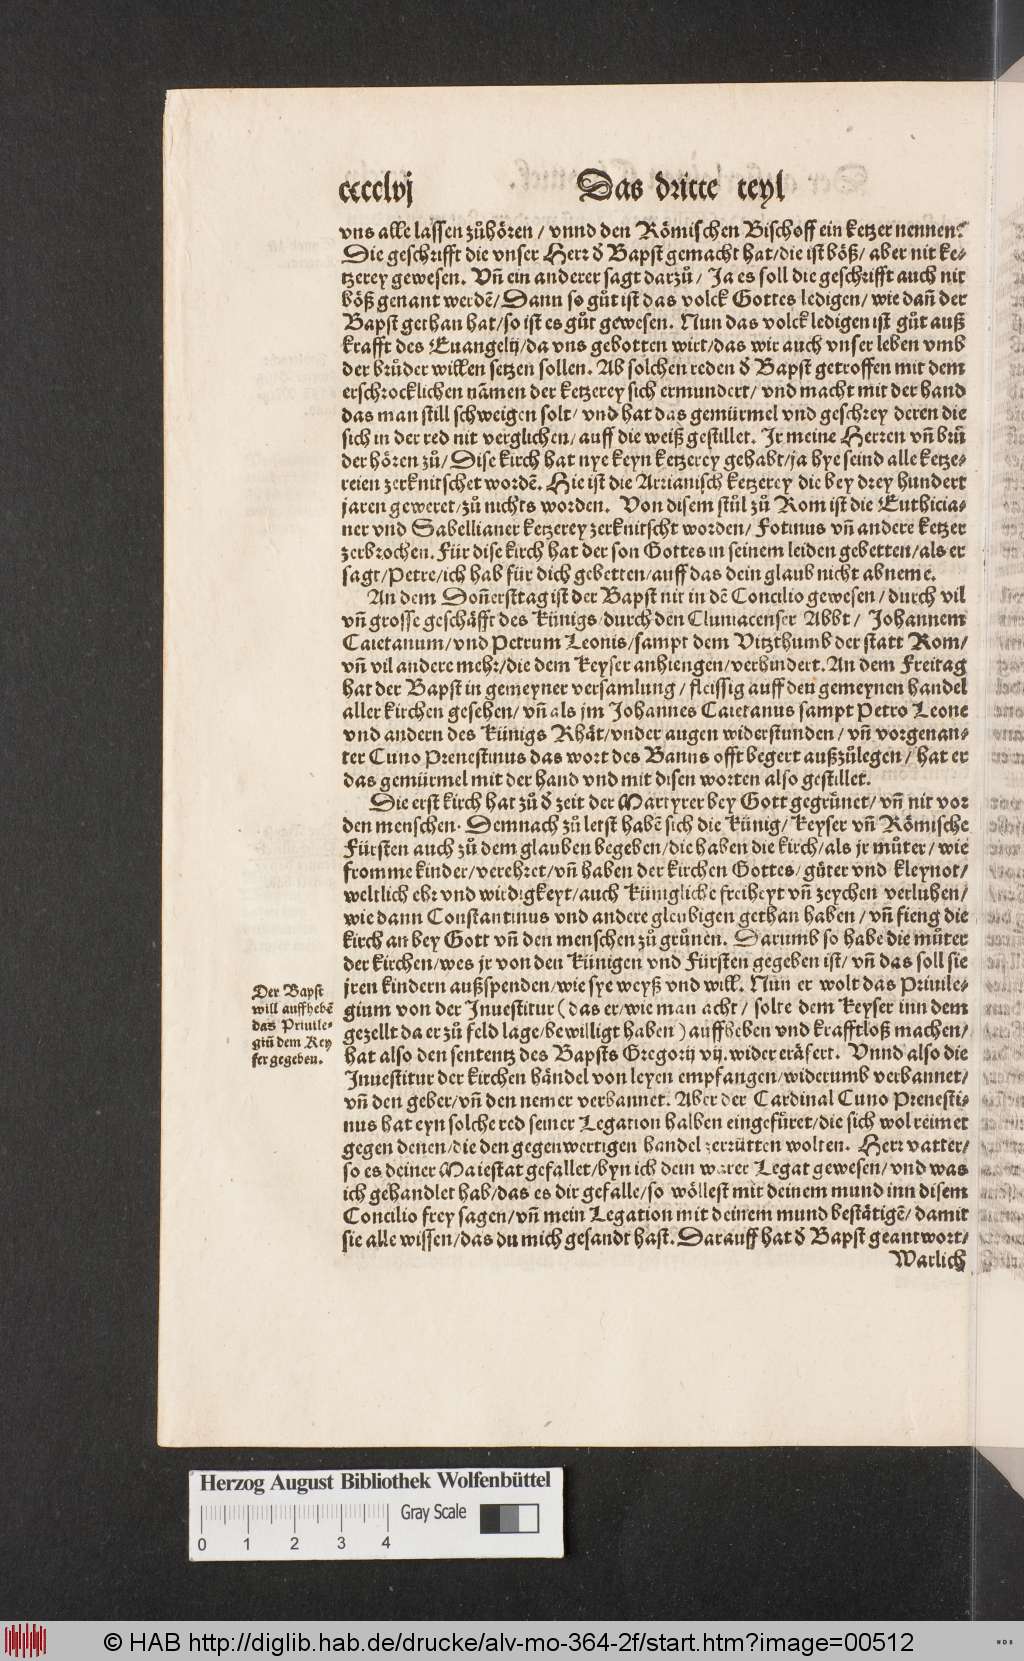 ccclvj Das dritte teyl
vns alle lassen zůhören / vnnd den Römischen Bischoff ein ketzer nennen?
Die geschrifft die vnser Herr d̕ Bapst gemacht hat/die ist böß/ aber nit ke⸗
tzerey gewesen. Vñ ein anderer sagt darzů/ Ja es soll die geschrifft auch nit
böß genant werdē/Dann so gůt ist das volck Gottes ledigen/ wie dañ der
Bapst gethan hat/so ist es gůt gewesen. Nun das volck ledigen ist gůt auß
krafft des Euangelij/da vns gebotten wirt/das wir auch vnser leben vmb
der brůder willen setzen sollen. Ab solchen reden d̕ Bapst getroffen mit dem
erschrocklichen nāmen der ketzerey sich ermundert/ vnd macht mit der hand
das man still schweigen solt/ vnd hat das gemürmel vnd geschrey deren die
sich in der red nit verglichen/ auff die weiß gestillet. Ir meine Herren vñ brů
der hören zů/ Dise kirch hat nye keyn ketzerey gehabt/ja hye seind alle ketze⸗
reien zerknitschet wordē. Hie ist die Arrianisch ketzerey die bey drey hundert
jaren geweret/zů nichts worden. Von disem stůl zů Rom ist die Euthicia⸗
ner vnd Sabellianer ketzerey zerknitscht worden/ Fotinus vñ andere ketzer
zerbrochen. Für dise kirch hat der son Gottes in seinem leiden gebetten/als er
sagt/Petre/ich hab für dich gebetten/auff das dein glaub nicht abneme.
An dem Doñersttag ist der Bapst nit in dē Concilio gewesen/ durch vil
vñ grosse geschäfft des Künigs/durch den Cluniacenser Abbt/ Johannem
Caietanum/vnd Petrum Leonis/sampt dem Vitzthumb der statt Rom/
vñ vil andere mehr/die dem Keyser anhiengen/verhindert. An dem Freitag
hat der Bapst in gemeyner versamlung/ fleissig auff den gemeynen handel
aller kirchen gesehen/ vñ als jm Johannes Caietanus sampt Petro Leone
vnd andern des Künigs Rhät/vnder augen widerstunden/ vñ vorgenan⸗
ter Cuno Prenestinus das wort des Banns offt begert außzůlegen/ hat er
das gemürmel mit der hand vnd mit disen worten also gestillet.
Die erst kirch hat zů d̕ zeit der Martyrer bey Gott gegrůnet/ vñ nit vor
den menschen. Demnach zů letst habē sich die Künig/ Keyser vñ Römische
Fürsten auch zů dem glauben begeben/die haben die kirch/als jr můter/ wie
fromme kinder/verehret/vñ haben der kirchen Gottes/ gůter vnd kleynot/
weltlich ehr vnd wirdigkeyt/auch Künigliche freiheyt vñ zeychen verluhen/
wie dann Constantinus vnd andere gleubigen gethan haben/ vñ fieng die
kirch an bey Gott vñ den menschen zů grůnen. Darumb so habe die můter
der kirchen/wes jr von den Künigen vnd Fürsten gegeben ist/ vñ das soll sie
jren kindern außspenden/wie sye weyß vnd will. Nun er wolt das Priuile⸗
gium von der Inuestitur (das er/wie man acht/ solte dem Keyser inn dem
gezellt da er zů feld lage/bewilligt haben) auffheben vnd krafftloß machen/
hat also den sententz des Bapsts Gregorij vij. wider eräfert. Vnnd also die
Inuestitur der kirchen händel von leyen empfangen/widerumb verbannet/
vñ den geber/vñ den nemer verbannet. Aber der Cardinal Cuno Prenesti⸗
nus hat eyn solche red seiner Legation halben eingefüret/die sich wol reimet
gegen denen/die den gegenwertigen handel zerrütten wolten. Herr vatter/
so es deiner Maiestat gefallet/byn ich dein warer Legat gewesen/ vnd was
ich gehandlet hab/das es dir gefalle/so wöllest mit deinem mund inn disem
Concilio frey sagen/vñ mein Legation mit deinem mund bestätigē/ damit
sie alle wissen/das du mich gesandt hast. Darauff hat d̕ Bapst geantwort/
Warlich
Der Bapst
will auffhebē
das Priuile⸗
giū dem Key
ser gegeben.
Herzog August Bibliothek Wolfenbüttel
Gray Scale
0 1 2 3 4
© HAB http://diglib.hab.de/drucke/alv-mo-364-2f/start.htm?image=00512